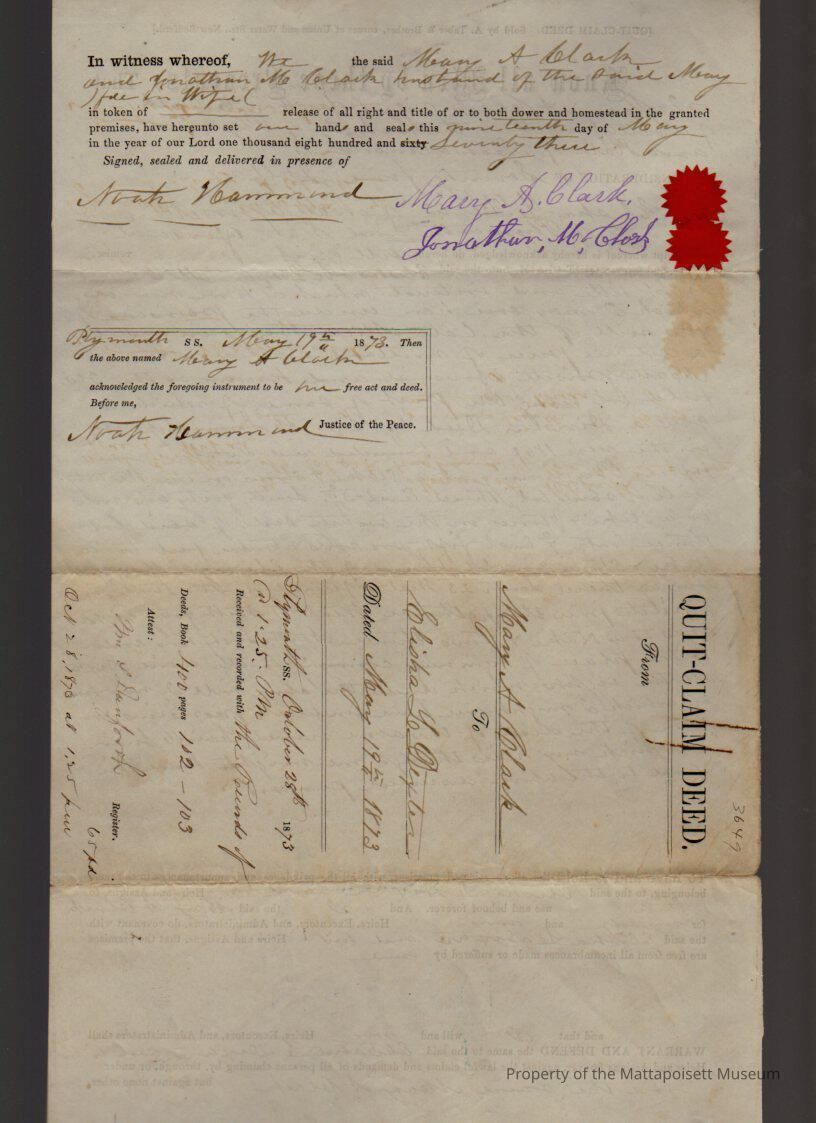 In witness whereof, We the said Mary A Clark
and Jonathan M Clark husband of the said Mary
in token of release of all right and title of or to both dower and homestead in the granted
premises, have hereunto set our hands and seals this nineteenth day of May
in the year of our Lord one thousand eight hundred and sixty seventy three
Signed, sealed and delivered in presence of
Noah Hammond
Mary A. Clark.
Jonathan, M, Clark
Plymouth SS. May 19th 1873. Then
the above named Mary A Clark
acknowledged the foregoing instrument to be her free act and deed.
Before me,
Noah Hammond Justice of the Peace.
3649
QUIT-CLAIM DEED.
From
Mary A Clark
To
Elisha L Dexter
Dated May 19th 1873
Plymouth SS. October 28th 1873
1.25. PM
Received and recorded with the Records of
Deeds, Book 400 pages 102 - 103
Attest:
Wm S Danforth Register.
65 pd
Oct 28, 1873 at 1,25 pm
Property of the Mattapoisett Museum